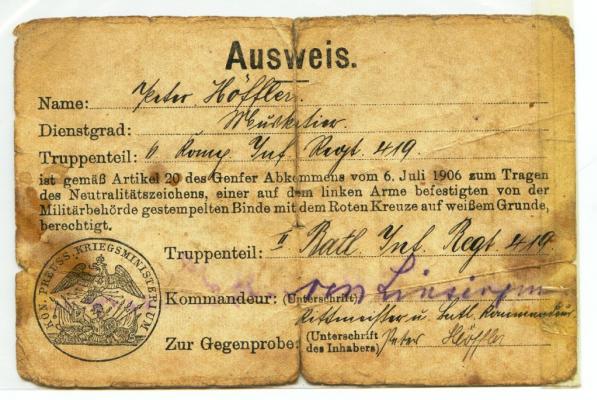 Ausweis.
Name: Peter Höffler.
Dienstgrad: Musketier.
Truppenteil: 6 Komp Inf Regt. 419.
ist gemäß Artikel 20 des Genfer Abkommens vom 6. Juli 1906 zum Tragen
des Neutralitätszeichens, einer auf dem linken Arme befestigten von der
Militärbehörde gestempelten Binde mit dem Roten Kreuze auf weißem Grunde,
berechtigt.
KÖN. PREUSS. KRIEGSMINISTERIUM
Truppenteil: II Batl Inf. Regt 419
Kommandeur: (Unterschrift) von
Rittmeister u. Batl. Kommandeur
Zur Gegenprobe: (Unterschrift des Inhabers) Peter Höffler